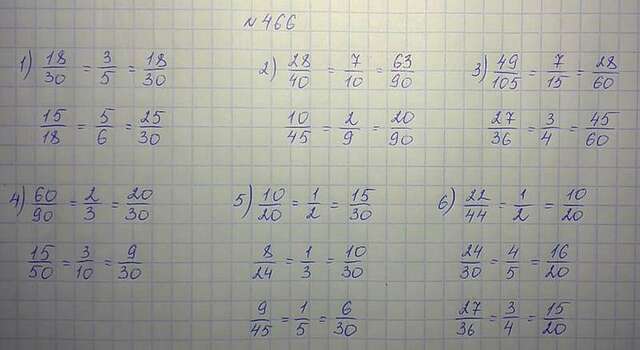 № 466
1) 18/30 = 3/5 = 18/30
15/18 = 5/6 = 25/30
2) 28/40 = 7/10 = 63/90
10/45 = 2/9 = 20/90
3) 49/105 = 7/15 = 28/60
27/36 = 3/4 = 45/60
4) 60/90 = 2/3 = 20/30
15/50 = 3/10 = 9/30
5) 10/20 = 1/2 = 15/30
8/24 = 1/3 = 10/30
9/45 = 1/5 = 6/30
6) 22/44 = 1/2 = 10/20
24/30 = 4/5 = 16/20
27/36 = 3/4 = 15/20